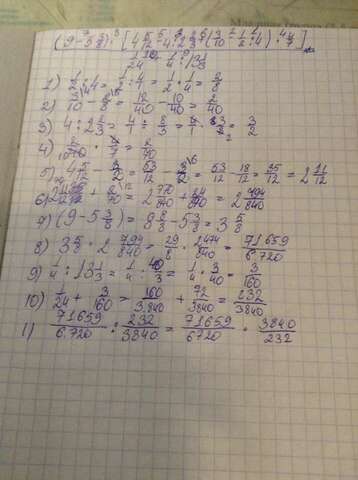 (9-5 3/8) · [4 5/12 - 4 : 2 2/3 + (3/10 - 1/2 : 4) · 4/7]
1/24 + 1/4 : 13 1/3
1) 1/2 : 4 = 1/2 : 4/1 = 1/2 · 1/4 = 1/8
2) 3/10 - 1/8 = 12/40 -
3) 4 : 2 2/3 = 4/1 : 8/3 = 4/1 · 3/8 = 3/2
5) 4 5/12 - 3/2 = 53/12 - 3/2 = 53/12 - 18/12 = 35/12 = 2 11/12
= 2 770/840 + 84/840 = 2 794/840
7) (9-5 3/8) = 8 8/8 - 5 3/8 = 3 5/8
8) 3 5/8 · 2 794/840 = 29/8 · 2474/840 = 71659/6.720
9) 1/4 : 13 1/3 = 1/4 : 40/3 = 1/4 · 3/40 = 3/160
10) 1/24 + 3/160 = 160/3.840 + 72/3840 = 232/3840
11) 71659/6.720 : 232/3840 = 71659/6720 · 3840/232